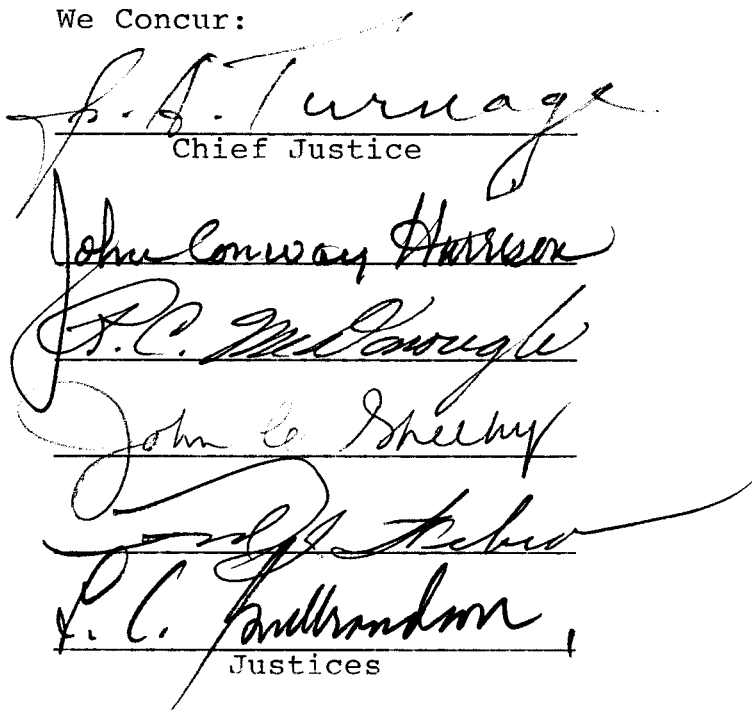 We Concur:
J. A. Turnage
Chief Justice
John Conway Harrison
R. C. McDonough
John C. Sheehy
L. C. Gulbrandson
Justices